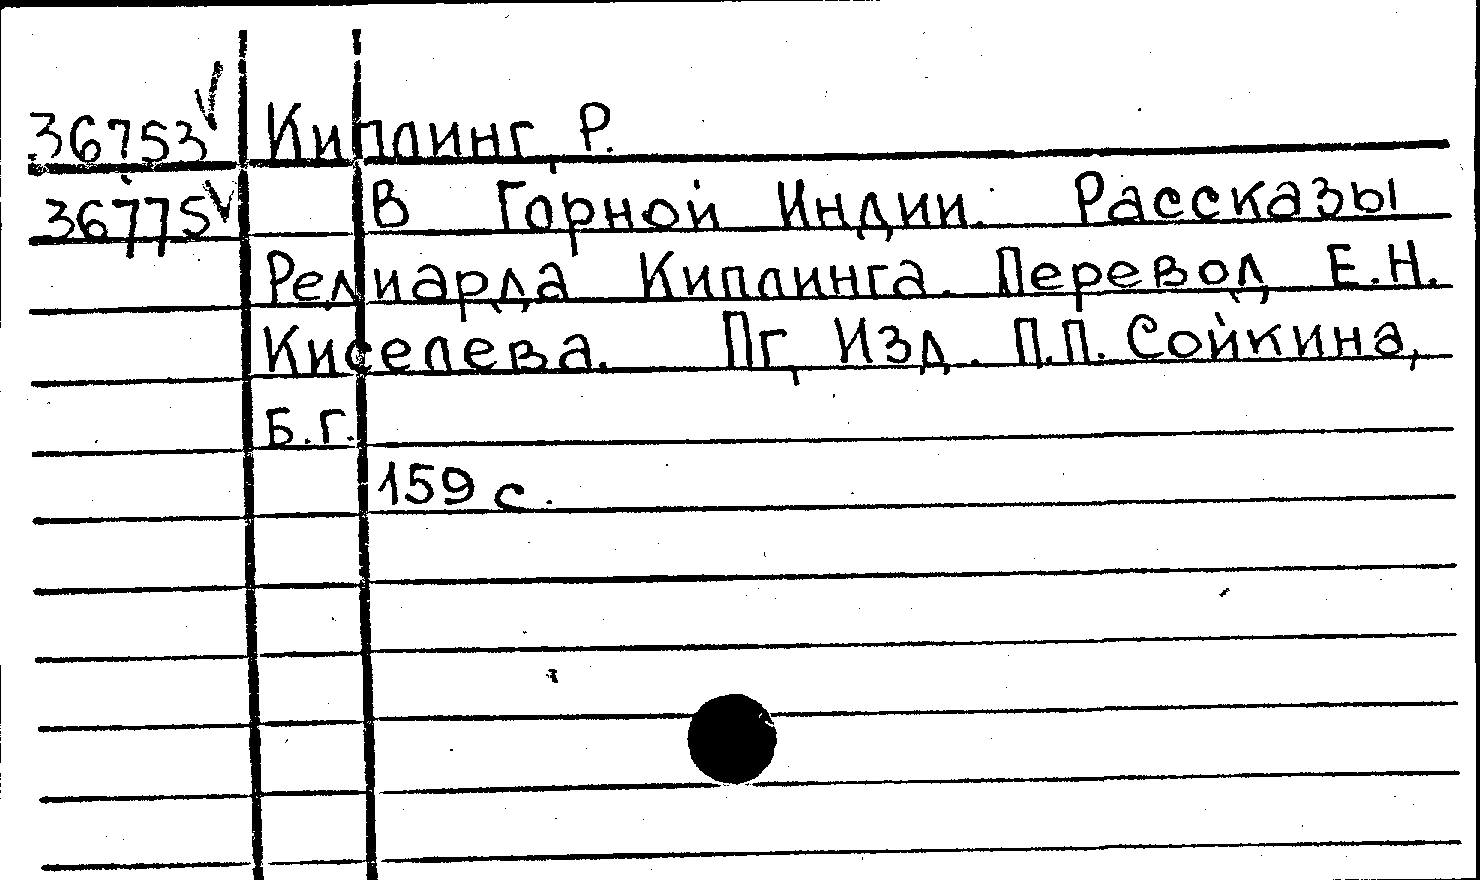 36753 V Киплинг, Р.
36775 V В Горной Индии. Рассказы
Редиарда Киплинга. Перевод Е.Н.
Киселева. Пг, Изд. П.П. Сойкина,
Б.г.
159 с.